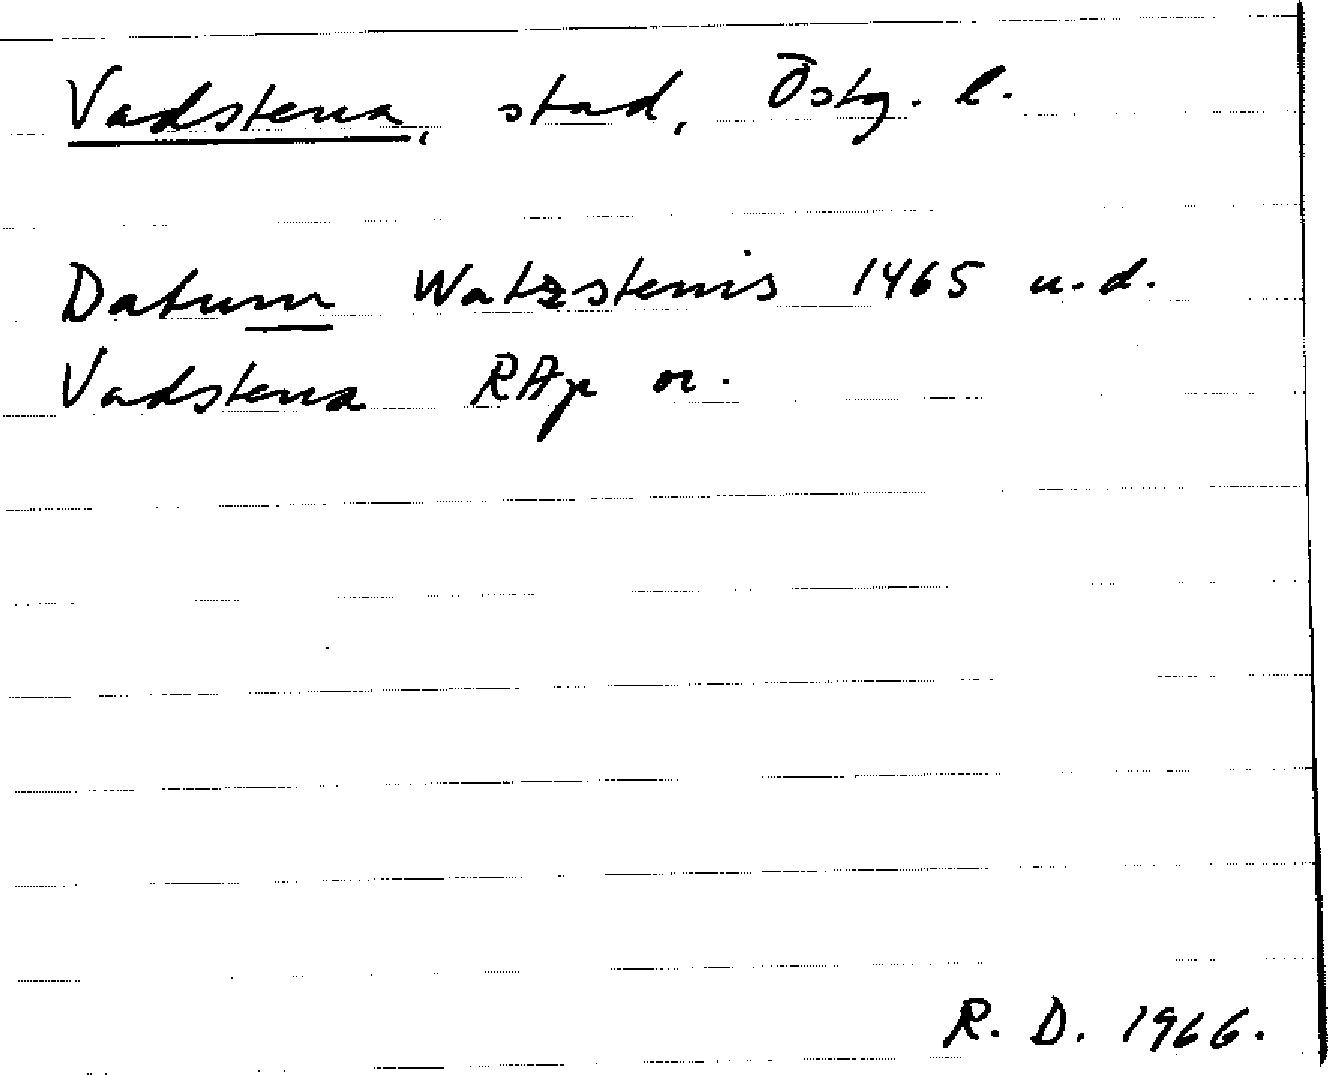 Vadstena, stad, Östg. l.
Datum Watzstenis 1465 u.d.
Vadstena RAp or.
R. D. 1966.